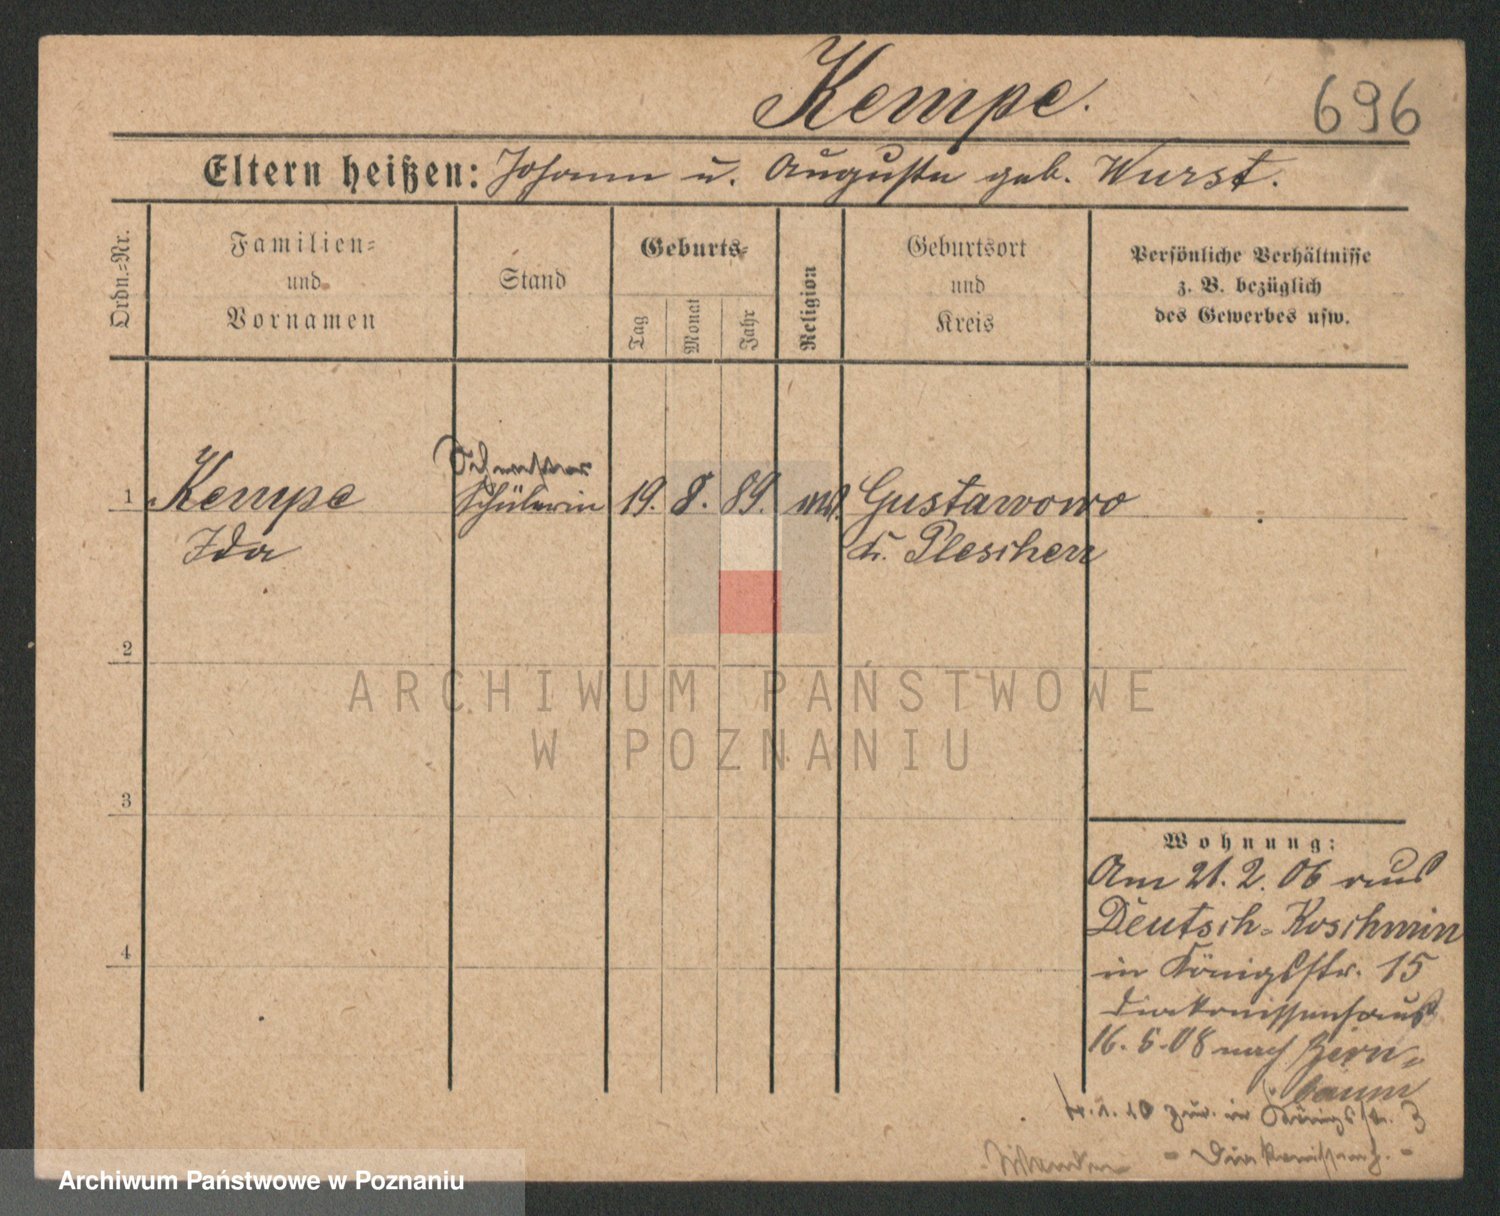 Kempe.
696
Eltern heißen: Johann u. Auguste geb. Wurst.
Ordn.-Nr.
Familien-
und
Vornamen
Stand
Geburts-
Tag
Monat
Jahr
Religion
Geburtsort
und
Kreis
Persönliche Verhältnisse
z. B. bezüglich
des Gewerbes usw.
Schwester
1 Kempe Schülerin 19. 8. 89. Gustawowo
Ida K. Pleschen
2
3
4
ARCHIWUM PAŃSTWOWE
W POZNANIU
Wohnung:
Am 21. 2. 06 aus
Deutsch-Koschmin
in Königsstr. 15
Diakonissenhaus
16. 5. 08 nach Birn-
baum
10 zur. in Königsstr. 3
- Diakonissenh. -
Archiwum Państwowe w Poznaniu